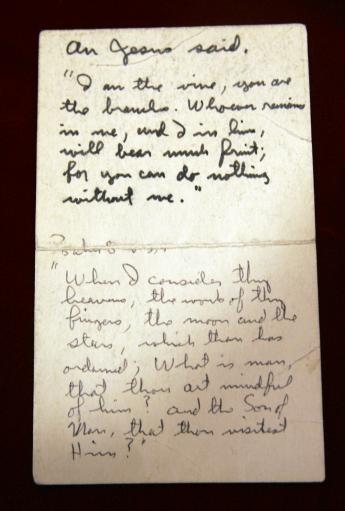 As Jesus said,
"I am the vine, you are
the branches. Whoever remains
in me, and I in him,
will bear much fruit;
for you can do nothing
without me."
Psalm 8
"When I consider thy
heavens, the work of thy
fingers, the moon and the
stars, which thou has
ordained; What is man,
that thou art mindful
of him? and the Son of
Man, that thou visitest
Him?"